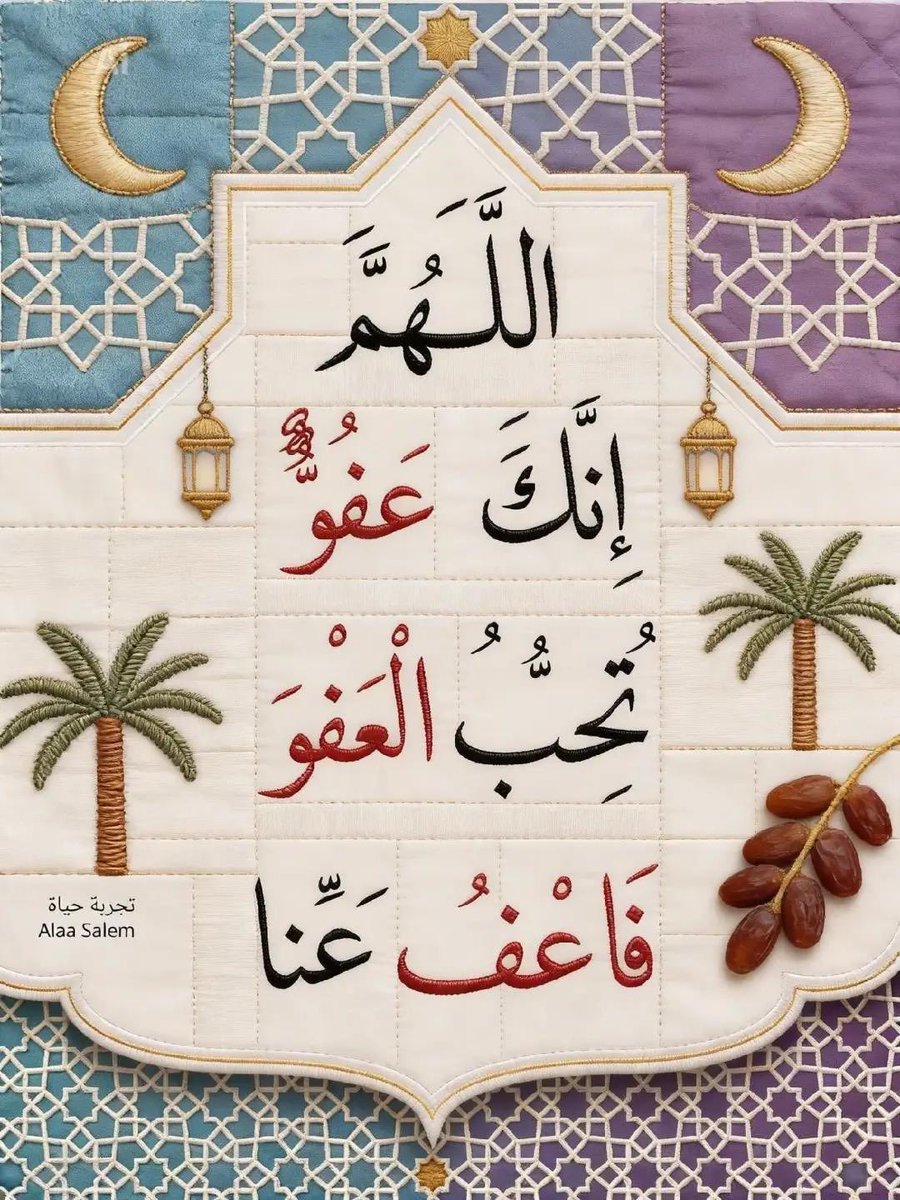 اللَّهُمَّ
إِنَّكَ عَفُوٌّ
تُحِبُّ الْعَفْوَ
فَاعْفُ عَنِّا
تجربة حياة
Alaa Salem